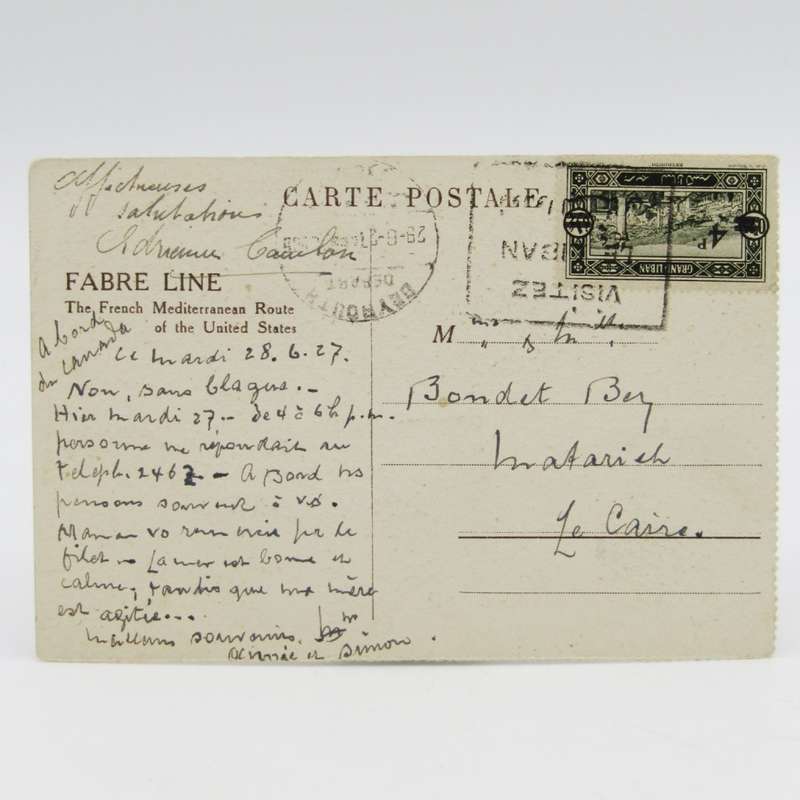 Affectueuses
salutations
Adrienne
CARTE POSTALE
FABRE LINE
The French Mediterranean Route
of the United States
A bord
du CANADA
Le mardi 28.6.27.
Non, sans blague.-
Hier mardi 27.- de 4 à 6h p.m.
personne ne répondait au
téléph. 2462 - A Bord ns
pensons souvent à vs.
Maman vs remercie pr le
filet - La mer est bonne et
calme, tandis que ma mère
est agitée...
Meilleurs souvenirs.
et Simon.
BEYROUTH
DEPART
29-6-27
VISITEZ
LE LIBAN
GRAND LIBAN
4 P
M
Bondet Bey
Matarieh
Le Caire.